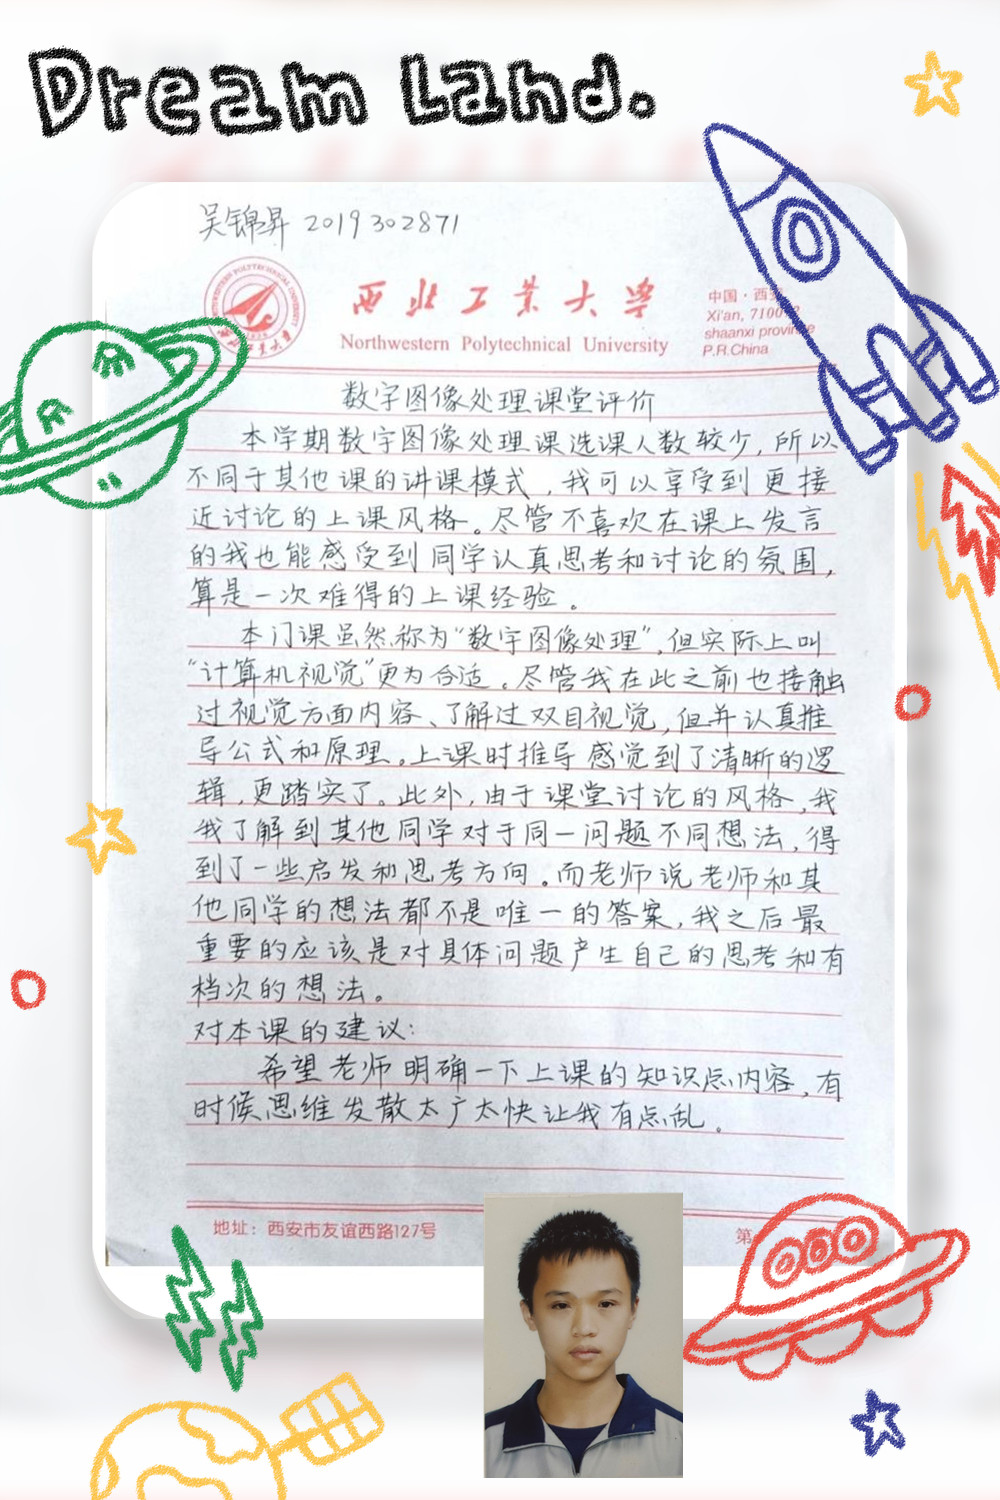 Dream Land.
吴锦昇 2019302871
西北工业大学
Northwestern Polytechnical University
中国·西
Xi'an, 7100
shaanxi province
P.R.China
数字图像处理课堂评价
本学期数字图像处理课选课人数较少，所以
不同于其他课的讲课模式，我可以享受到更接
近讨论的上课风格。尽管不喜欢在课上发言
的我也能感受到同学认真思考和讨论的氛围，
算是一次难得的上课经验。
本门课虽然称为“数字图像处理”，但实际上叫
“计算机视觉”更为合适。尽管我在此之前也接触
过视觉方面内容、了解过双目视觉，但并认真推
导公式和原理。上课时推导感觉到了清晰的逻
辑，更踏实了。此外，由于课堂讨论的风格，我
我了解到其他同学对于同一问题不同想法，得
到了一些启发和思考方向。而老师说老师和其
他同学的想法都不是唯一的答案，我之后最
重要的应该是对具体问题产生自己的思考和有
档次的想法。
对本课的建议：
希望老师明确一下上课的知识点内容，有
时候思维发散太广太快让我有点乱。
地址：西安市友谊西路127号
第